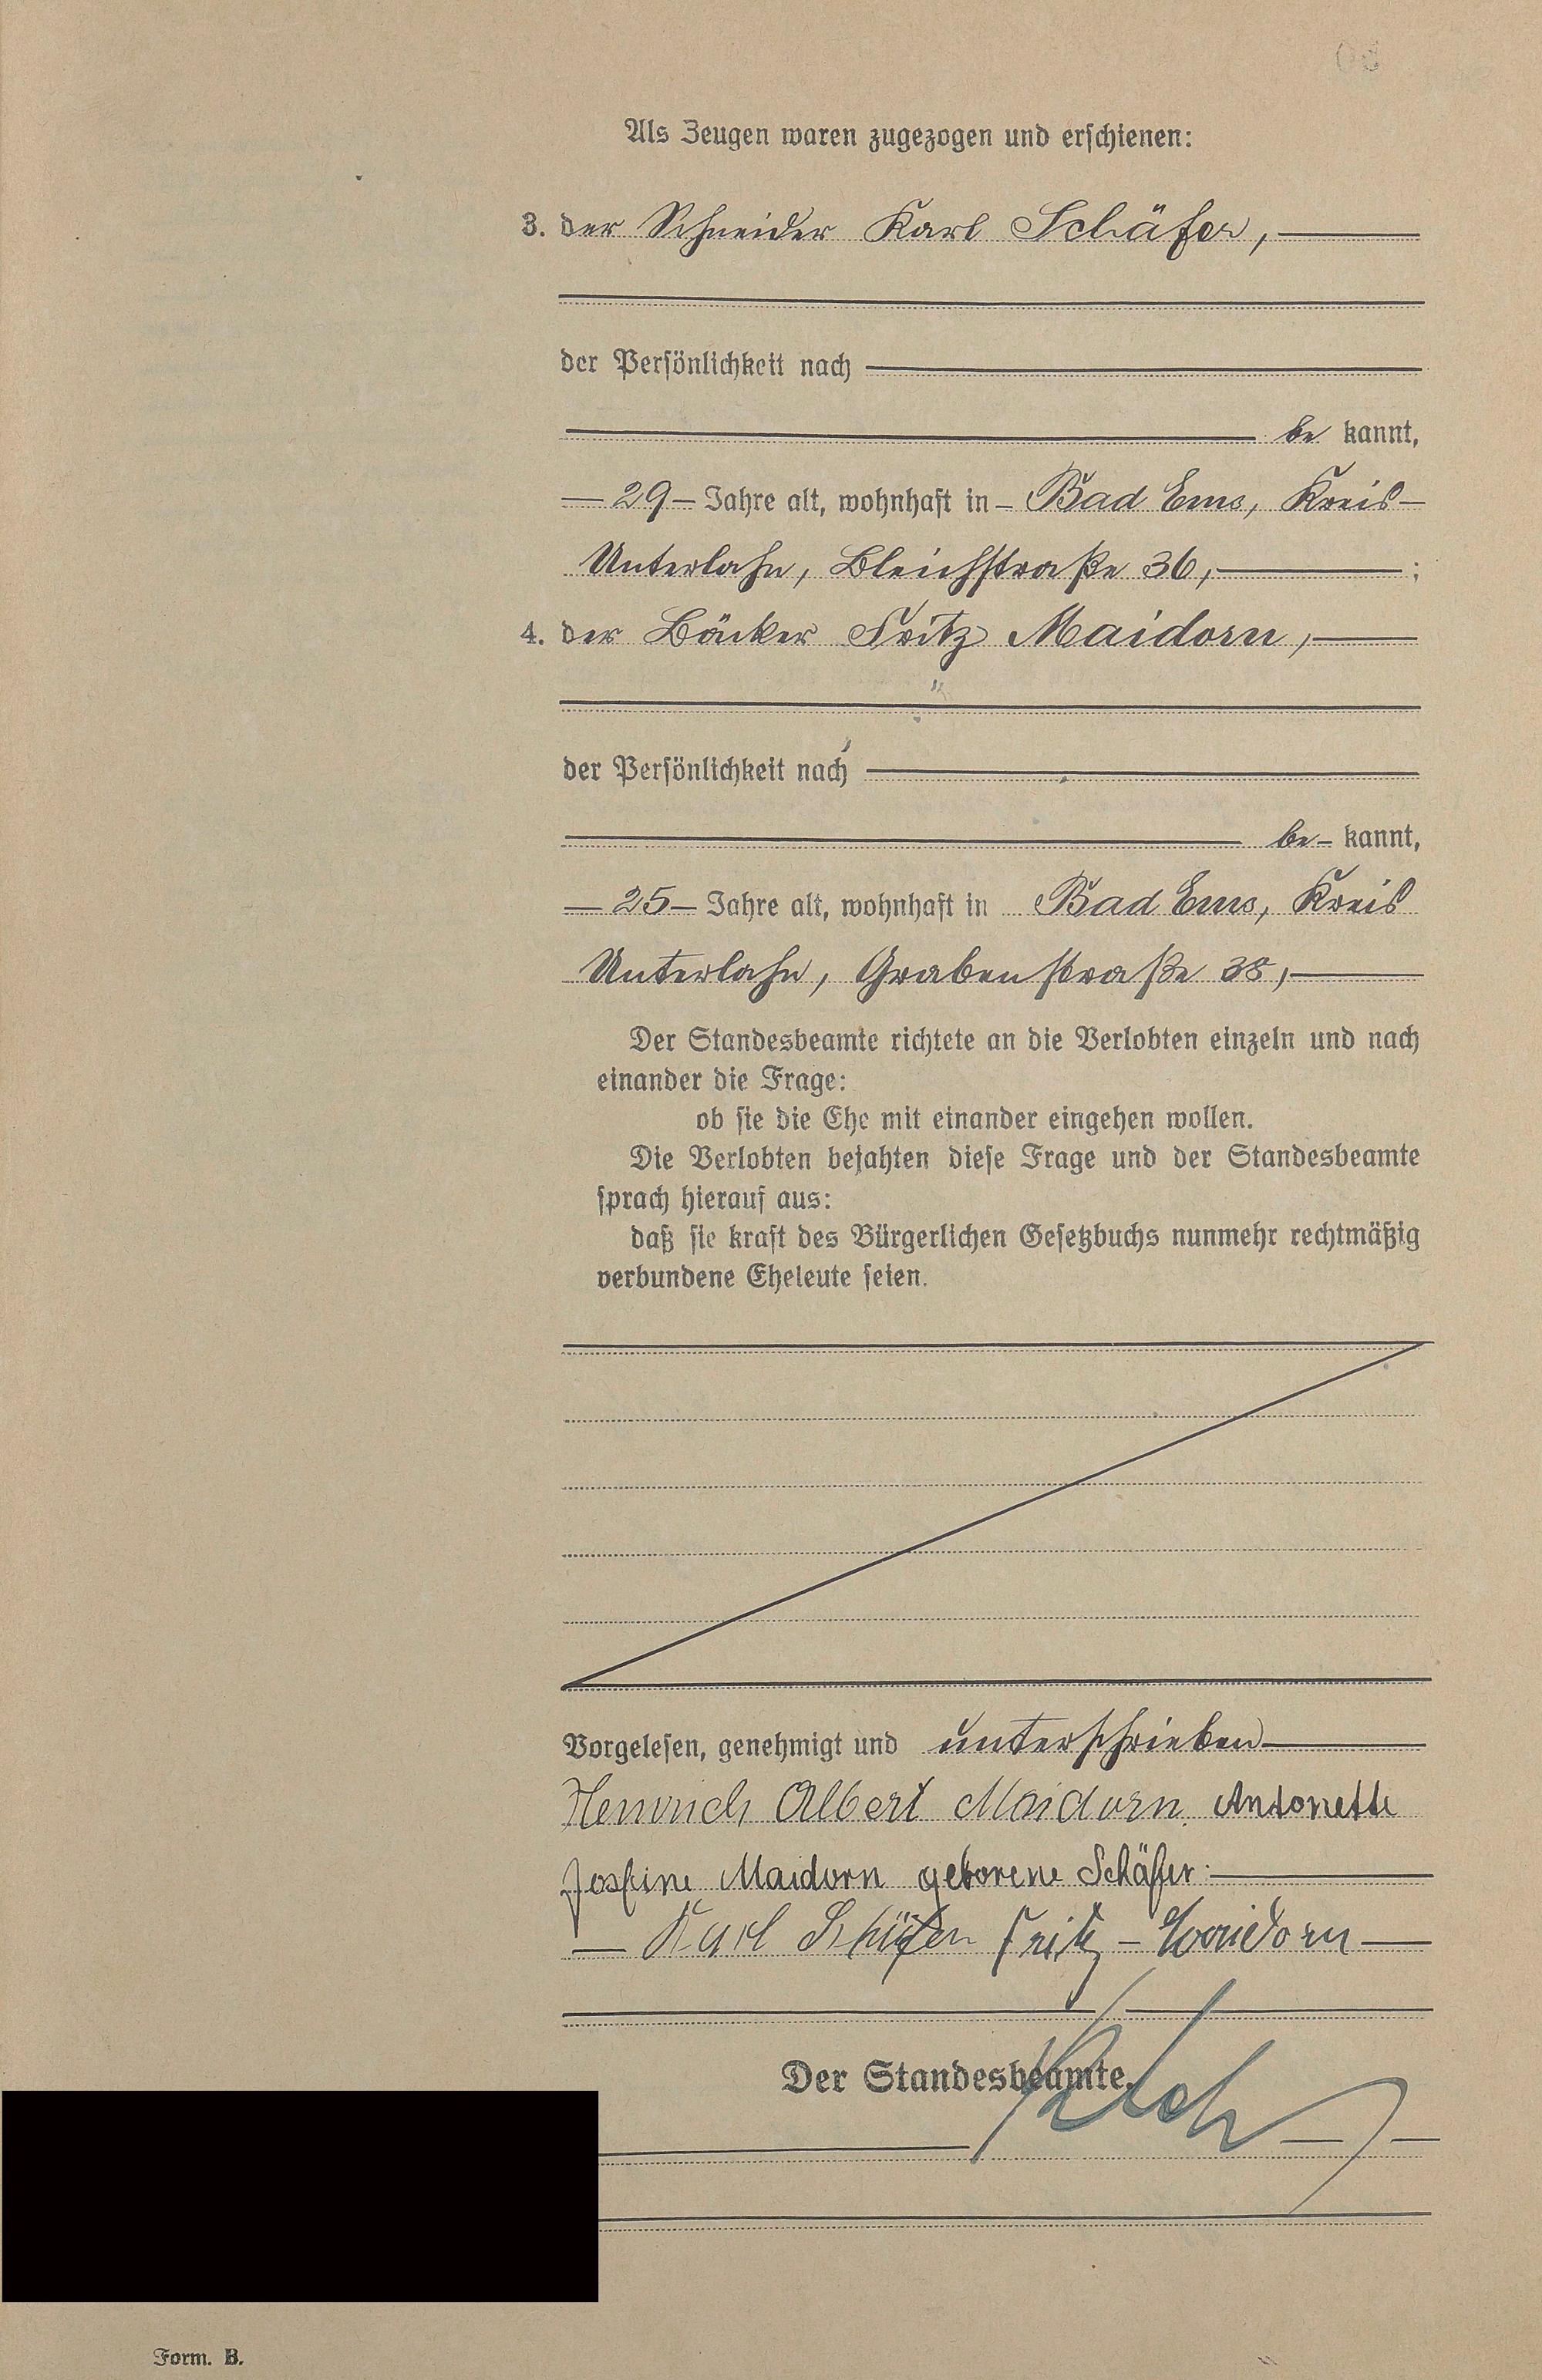 Als Zeugen waren zugezogen und erschienen:
3. der Schneider Karl Schäfer,
der Persönlichkeit nach
be kannt,
29 Jahre alt, wohnhaft in Bad Ems, Kreis
Unterlahn, Bleichstraße 36, ;
4. der Bäcker Fritz Maidorn,
der Persönlichkeit nach
be- kannt,
25 Jahre alt, wohnhaft in Bad Ems, Kreis
Unterlahn, Grabenstraße 38,
Der Standesbeamte richtete an die Verlobten einzeln und nach
einander die Frage:
ob sie die Ehe mit einander eingehen wollen.
Die Verlobten bejahten diese Frage und der Standesbeamte
sprach hierauf aus:
daß sie kraft des Bürgerlichen Gesetzbuchs nunmehr rechtmäßig
verbundene Eheleute seien.
Vorgelesen, genehmigt und unterschrieben
Heinrich Albert Maidorn. Antonette
Josefine Maidorn geborene Schäfer.
Karl Schäfer Fritz Maidorn
Der Standesbeamte.
Form. B.